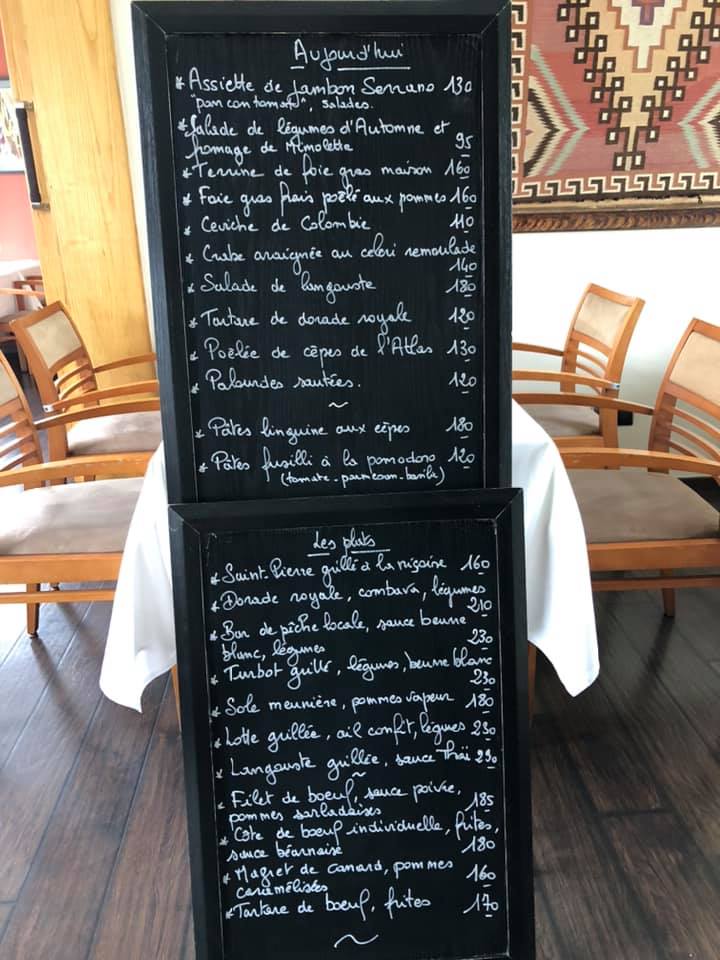 Aujourd'hui
* Assiette de jambon Serrano 130
"pan con tomate", salades.
* Salade de légumes d'Automne et
fromage de Mimolette 95
* Terrine de foie gras maison 160
* Foie gras frais poêlé aux pommes 160
* Ceviche de Colombie 110
* Crabe araignée au celeri remoulade
140
* Salade de langouste 180
* Tartare de dorade royale 120
* Poêlée de cèpes de l'Atlas 130
* Palourdes sautées. 120
~
* Pâtes linguine aux cèpes 180
* Pâtes fusilli à la pomodoro 120
(tomate - parmesan - basilic)
Les plats
* Saint-Pierre grillé à la niçoise 160
* Dorade royale, combava, légumes
210
* Bar de pêche locale, sauce beurre
blanc, légumes 230
* Turbot grillé, légumes, beurre blanc
230
* Sole meunière, pommes vapeur 180
* Lotte grillée, ail confit, légumes 230
* Langouste grillée, sauce Thaï 290
~
* Filet de boeuf, sauce poivre,
pommes sarladaises 185
* Côte de boeuf individuelle, frites,
sauce béarnaise 180
* Magret de canard, pommes
caramélisées 160
* Tartare de boeuf, frites 170
~